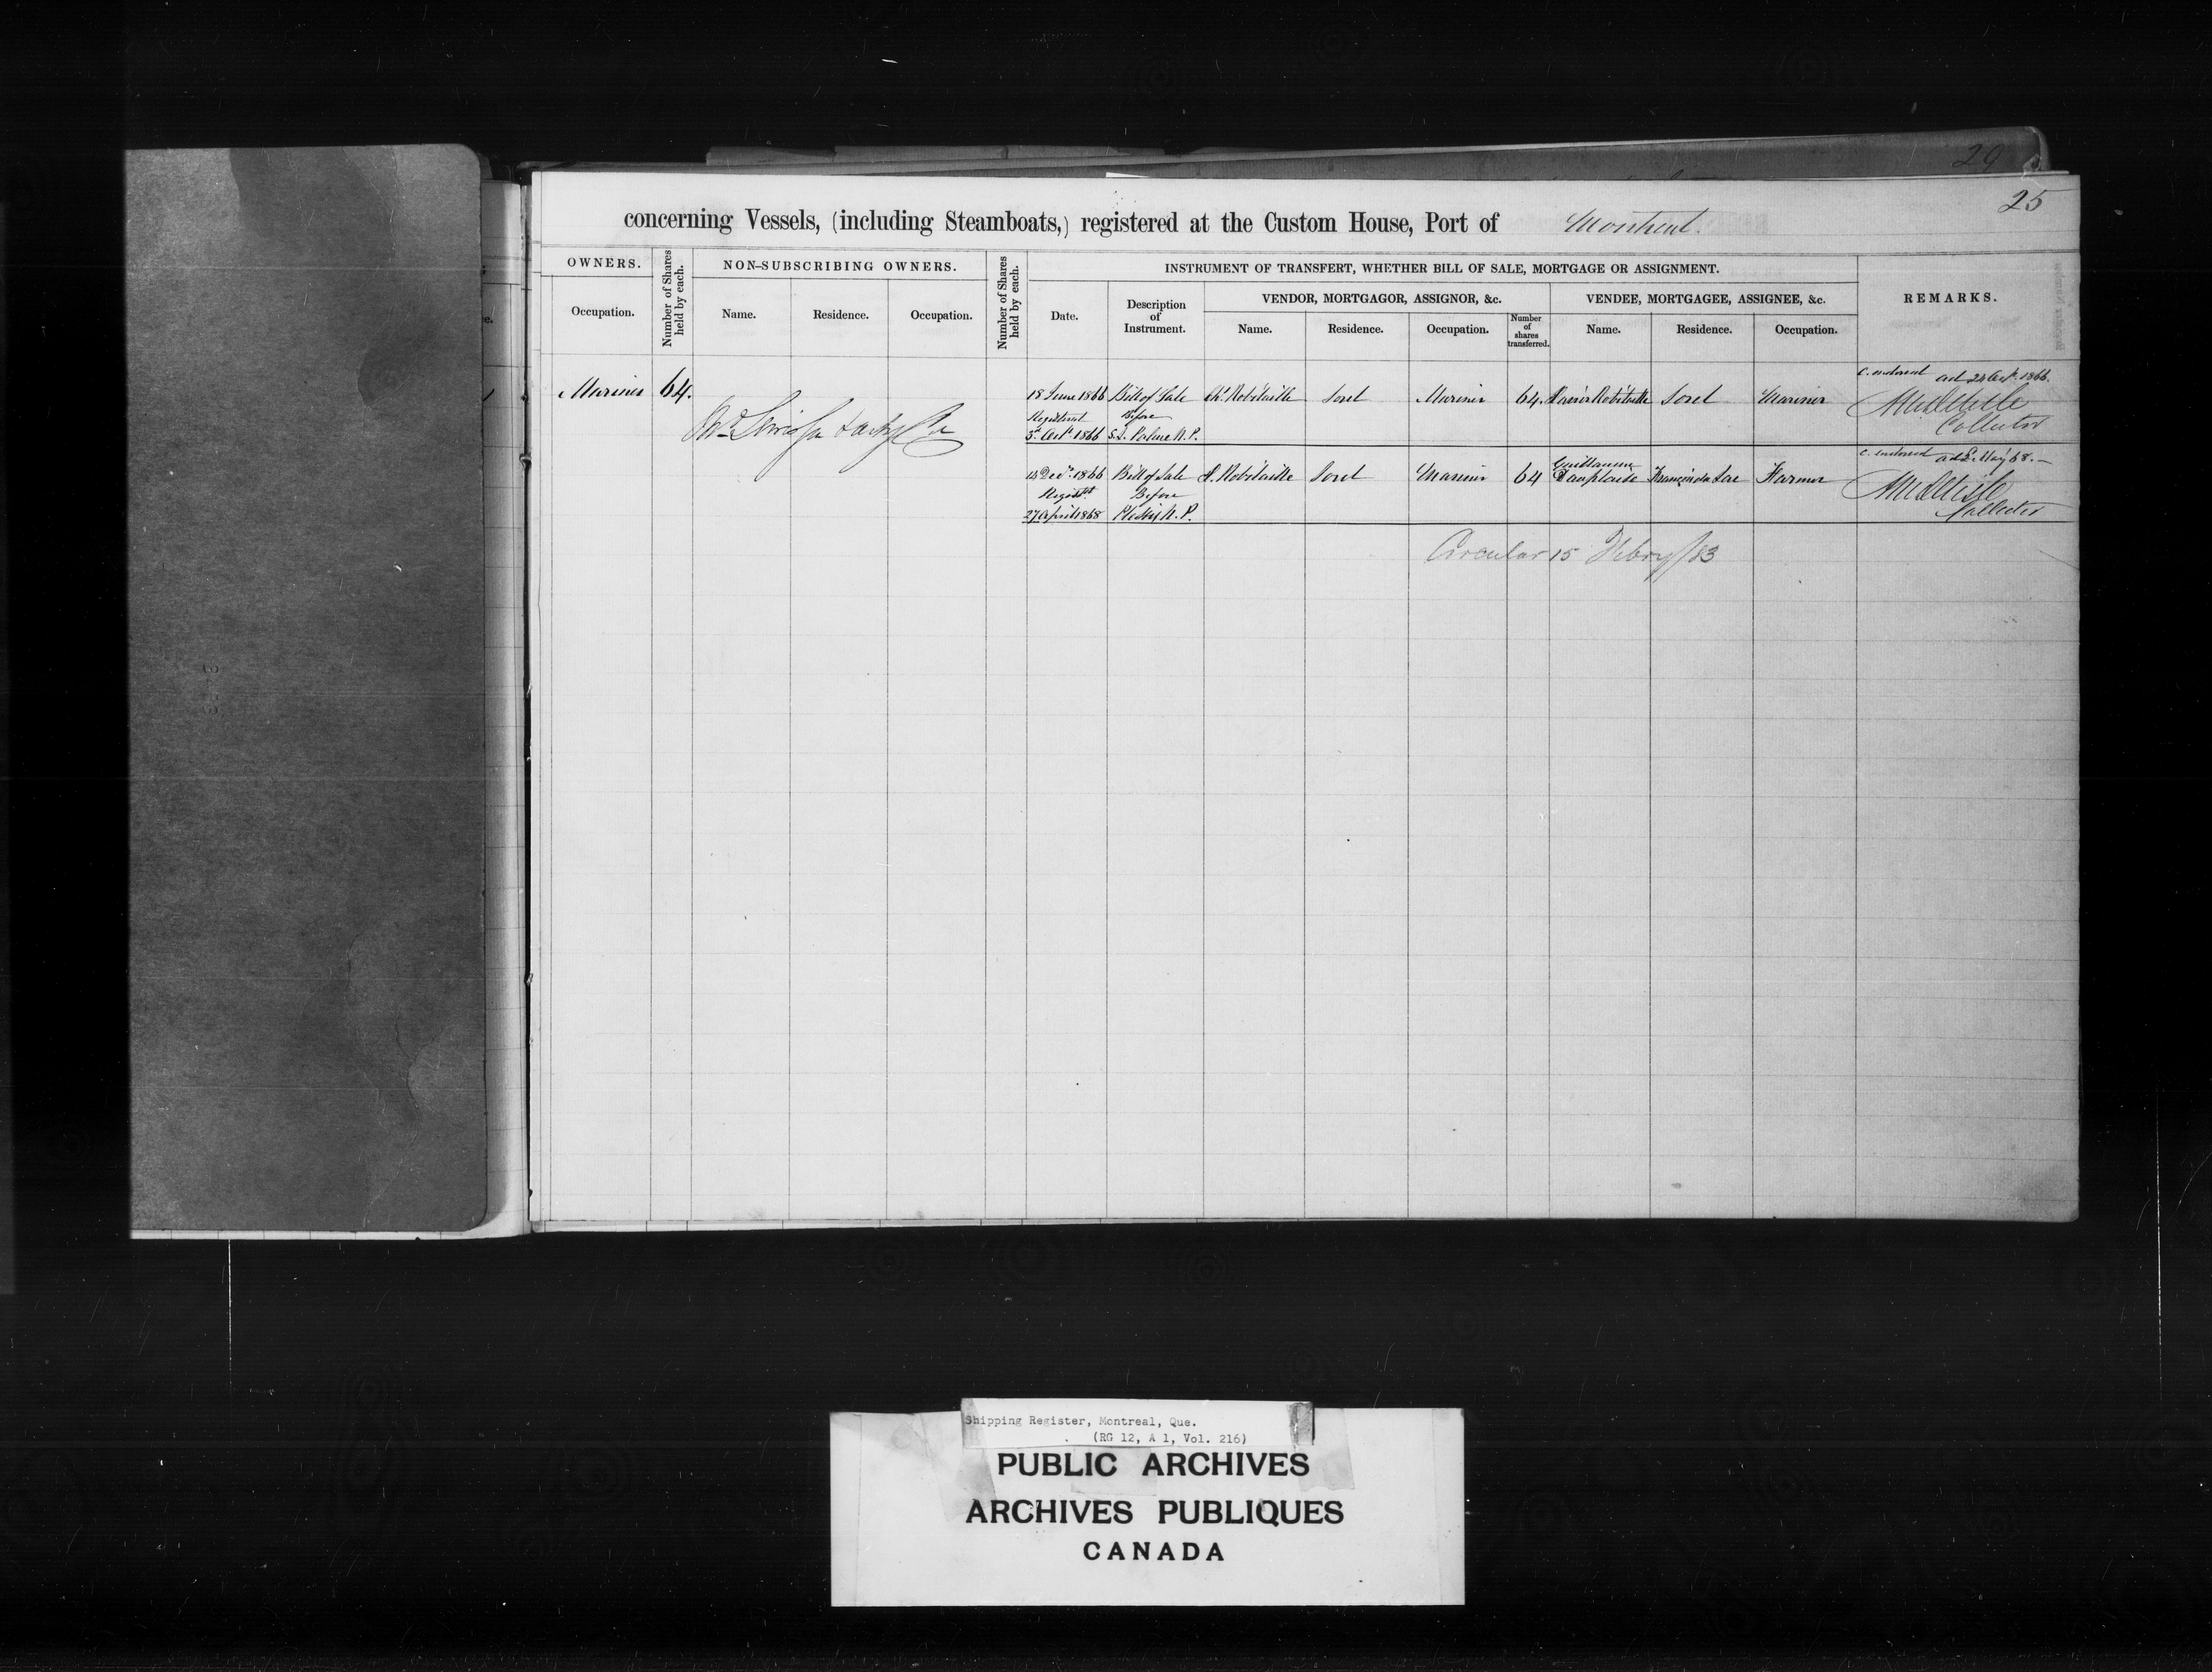 29
25
concerning Vessels, (including Steamboats,) registered at the Custom House, Port of Montreal.
OWNERS.
Number of Shares held by each.
NON-SUBSCRIBING OWNERS.
Number of Shares held by each.
INSTRUMENT OF TRANSFERT, WHETHER BILL OF SALE, MORTGAGE OR ASSIGNMENT.
REMARKS.
Occupation.
Name.
Residence.
Occupation.
Date.
Description of Instrument.
VENDOR, MORTGAGOR, ASSIGNOR, &c.
VENDEE, MORTGAGEE, ASSIGNEE, &c.
Name.
Residence.
Occupation.
Number of shares transferred.
Name.
Residence.
Occupation.
Mariner 64.
18 June 1866 Bill of Sale Robitaille Sorel Mariner 64. Robitaille Sorel Mariner
c. endorsed 1866.
Registered Before
3d Octr 1866 N.P.
Collector
Decr. 1866 Bill of Sale Robitaille Sorel Mariner 64 Guillaume Farmer
c. endorsed May 68.
Registd Before
27 April 1868 N.P.
Collector
Circular 15 Febry/83
Shipping Register, Montreal, Que.
(RG 12, A 1, Vol. 216)
PUBLIC ARCHIVES
ARCHIVES PUBLIQUES
CANADA